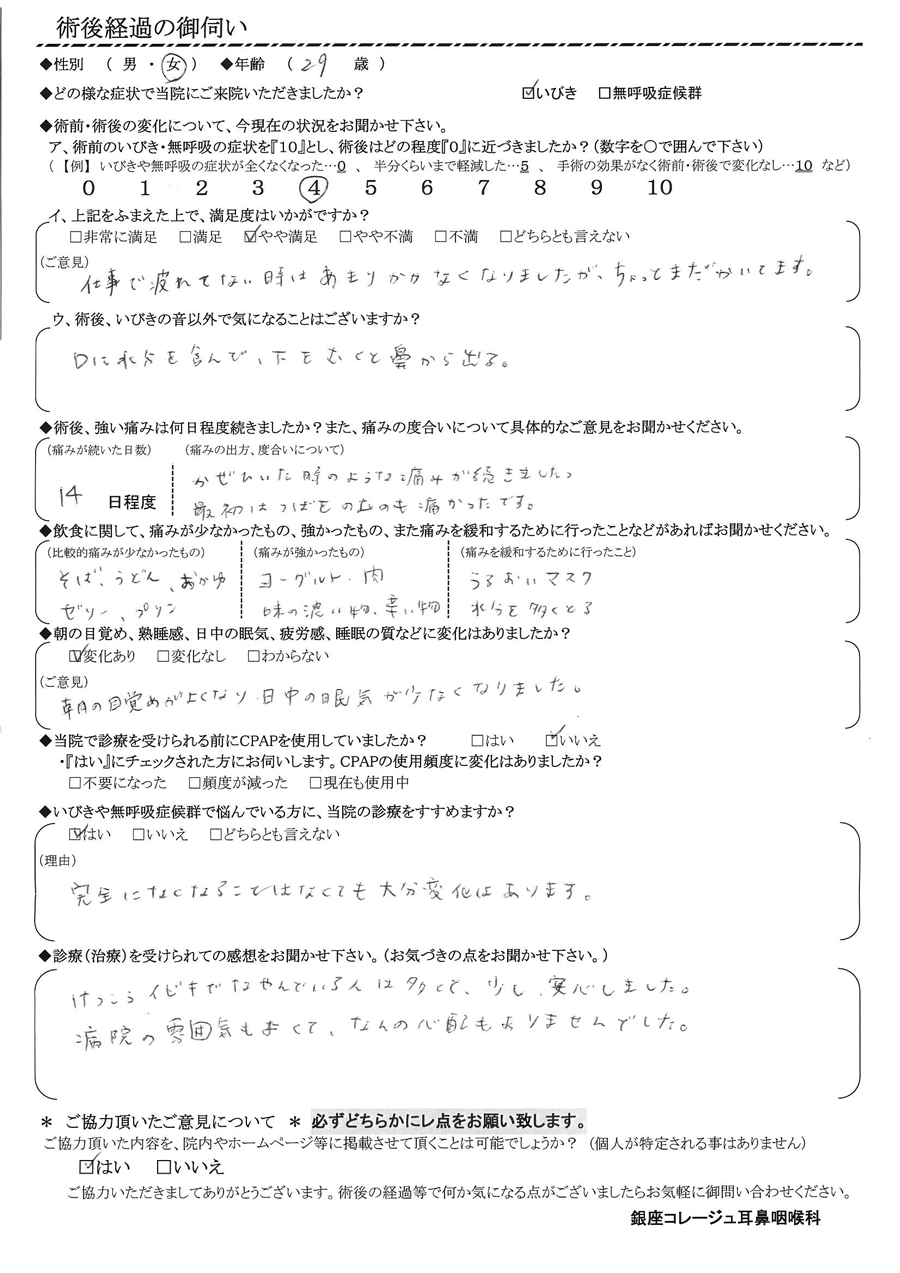 術後経過の御伺い
◆性別 （ 男 ・ 女 ） ◆年齢 （ 29 歳 ）
◆どの様な症状で当院にご来院いただきましたか？ ☑いびき □無呼吸症候群
◆術前・術後の変化について、今現在の状況をお聞かせ下さい。
ア、術前のいびき・無呼吸の症状を『10』とし、術後はどの程度『0』に近づきましたか？（数字を〇で囲んで下さい）
（ 【例】 いびきや無呼吸の症状が全くなくなった…0 、 半分くらいまで軽減した…5 、 手術の効果がなく術前・術後で変化なし…10 など）
0 1 2 3 4 5 6 7 8 9 10
イ、上記をふまえた上で、満足度はいかがですか？
□非常に満足 □満足 ☑やや満足 □やや不満 □不満 □どちらとも言えない
（ご意見）
仕事で疲れてない時はあまりかかなくなりましたが、ちょっとまだかいてます。
ウ、術後、いびきの音以外で気になることはございますか？
口に水分を含んで、下をむくと鼻から出る。
◆術後、強い痛みは何日程度続きましたか？また、痛みの度合いについて具体的なご意見をお聞かせください。
（痛みが続いた日数） （痛みの出方、度合いについて）
14 日程度
かぜひいた時のような痛みが続きました。
最初はつばをのむのも痛かったです。
◆飲食に関して、痛みが少なかったもの、強かったもの、また痛みを緩和するために行ったことなどがあればお聞かせください。
（比較的痛みが少なかったもの） （痛みが強かったもの） （痛みを緩和するために行ったこと）
そば、うどん、おかゆ ヨーグルト・肉 うるおいマスク
ゼリー、プリン 味の濃い物、辛い物 水分を多くとる
◆朝の目覚め、熟睡感、日中の眠気、疲労感、睡眠の質などに変化はありましたか？
☑変化あり □変化なし □わからない
（ご意見）
朝の目覚めがよくなり、日中の眠気が少なくなりました。
◆当院で診療を受けられる前にCPAPを使用していましたか？ □はい ☑いいえ
・『はい』にチェックされた方にお伺いします。CPAPの使用頻度に変化はありましたか？
□不要になった □頻度が減った □現在も使用中
◆いびきや無呼吸症候群で悩んでいる方に、当院の診療をすすめますか？
☑はい □いいえ □どちらとも言えない
（理由）
完全になくなることはなくても大分変化はあります。
◆診療（治療）を受けられての感想をお聞かせ下さい。（お気づきの点をお聞かせ下さい。）
けっこうイビキでなやんでいる人は多くて、少し、安心しました。
病院の雰囲気もよくて、なんの心配もありませんでした。
＊ ご協力頂いたご意見について ＊ 必ずどちらかにレ点をお願い致します。
ご協力頂いた内容を、院内やホームページ等に掲載させて頂くことは可能でしょうか？ （個人が特定される事はありません）
☑はい □いいえ
ご協力いただきましてありがとうございます。術後の経過等で何か気になる点がございましたらお気軽に御問い合わせください。
銀座コレージュ耳鼻咽喉科